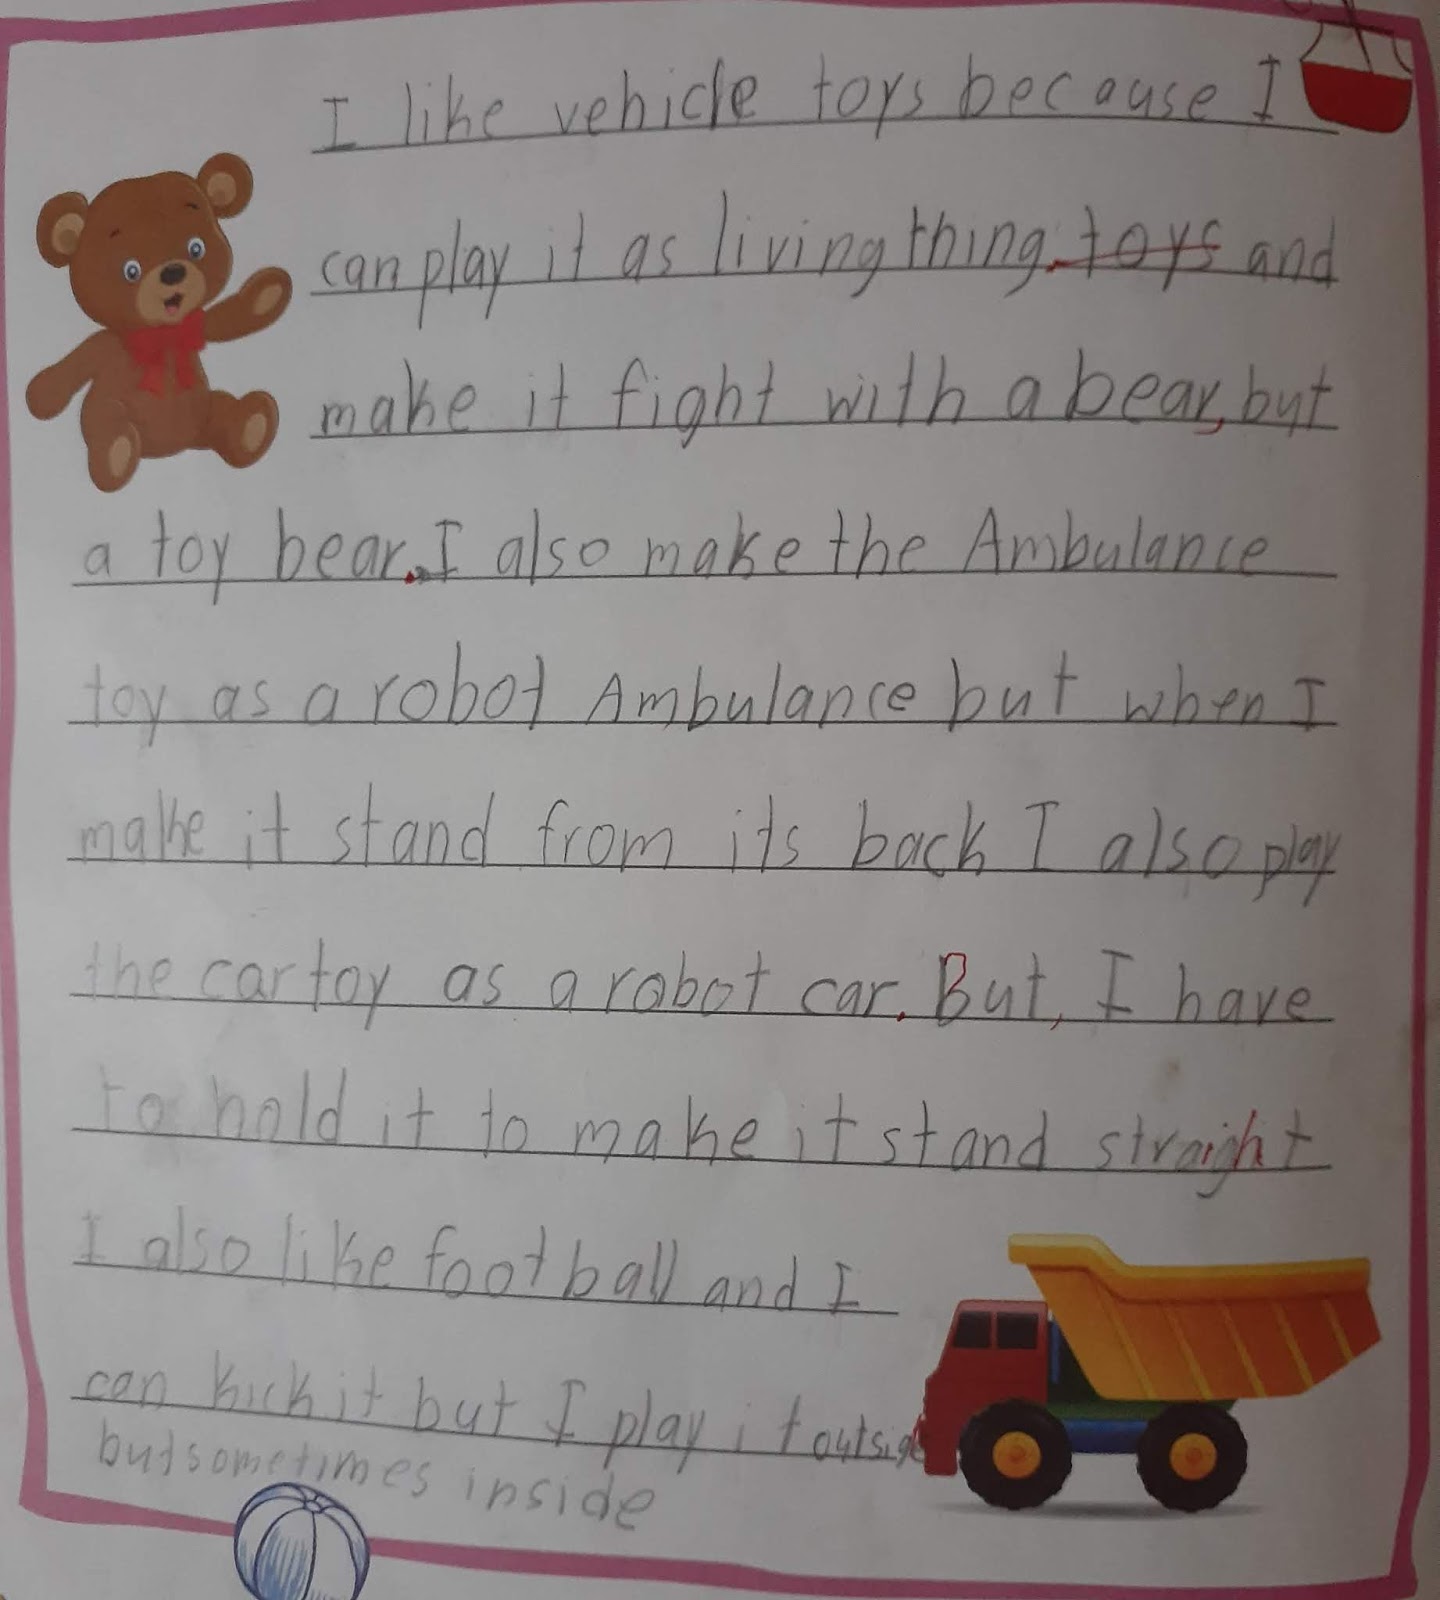 I like vehicle toys because I
can play it as living thing. toys and
make it fight with a bear, but
a toy bear. I also make the Ambulance
toy as a robot Ambulance but when I
make it stand from its back I also play
the car toy as a robot car. But, I have
to hold it to make it stand straight
I also like football and I
can kick it but I play it outside
but sometimes inside